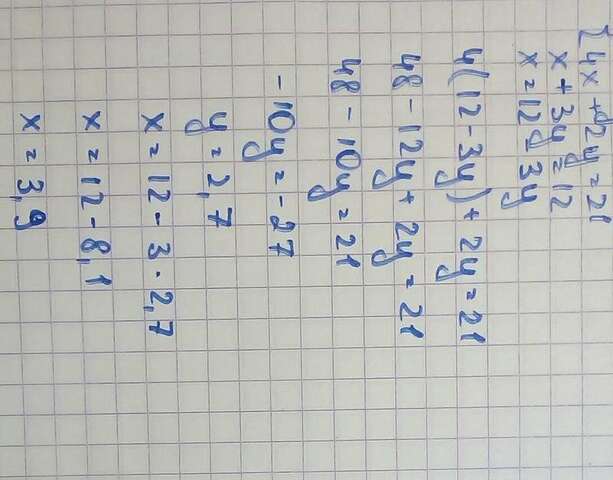 {4x + 2y = 21
x + 3y = 12
x = 12 - 3y
4(12 - 3y) + 2y = 21
48 - 12y + 2y = 21
48 - 10y = 21
- 10y = - 27
y = 2,7
x = 12 - 3 · 2,7
x = 12 - 8,1
x = 3,9